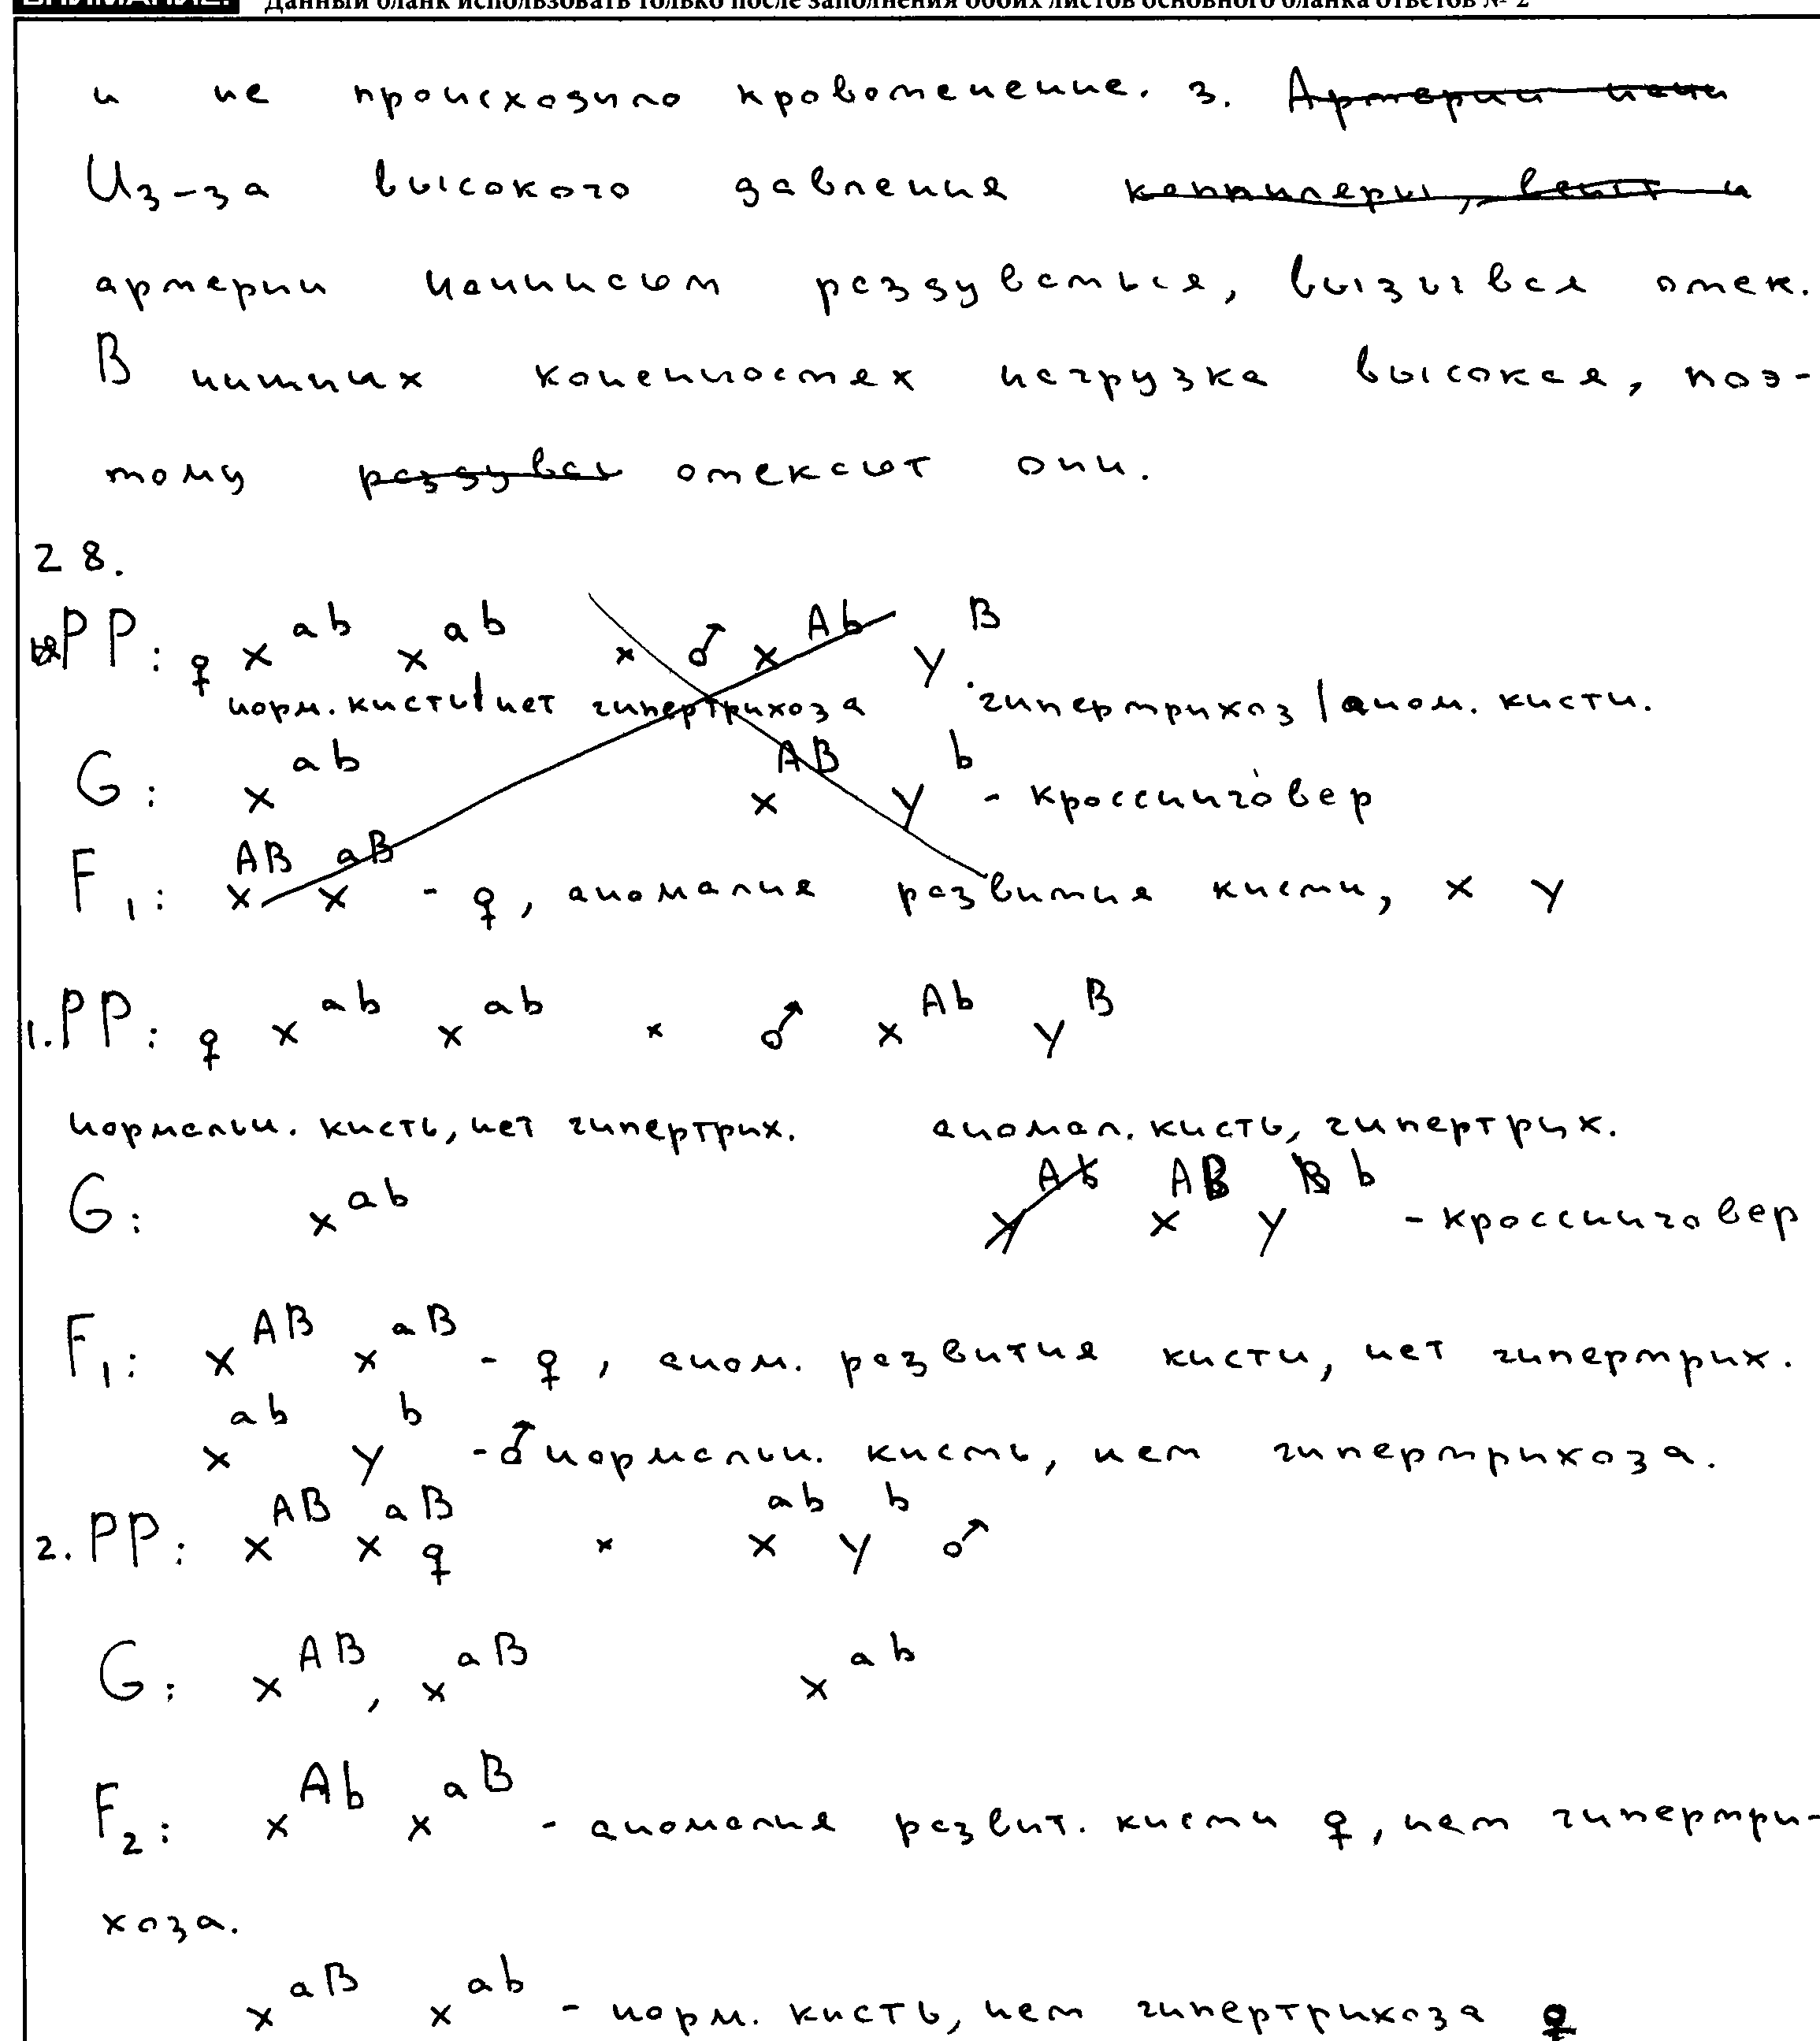 ВНИМАНИЕ! Данный бланк использовать только после заполнения обоих листов основного бланка ответов № 2
и не происходило кровотечение. 3. Артерии начи
Из-за высокого давления каппилеры, вены и
артерии начинают раздуваться, вызывая отек.
В нижних конечностях нагрузка высокая, поэ-
тому раздувая отекают они.
28.
PP: ♀ x^ab x^ab × ♂ x^Ab y^B
норм. кисть/нет гипертрихоза гипертрихоз | аном. кисти.
G: x^ab x^AB y^b - кроссинговер
F1: x^AB x^aB - ♀, аномалия развития кисти, x y
1. PP: ♀ x^ab x^ab × ♂ x^Ab y^B
нормальн. кисть, нет гипертрих. аномал. кисть, гипертрих.
G: x^ab x^Ab x^AB y^b - кроссинговер
F1: x^AB x^aB - ♀, аном. развития кисти, нет гипертрих.
x^ab y^b - ♂ нормальн. кисть, нет гипертрихоза.
2. PP: x^AB x^aB ♀ × x^ab y^b ♂
G: x^AB, x^aB x^ab
F2: x^Ab x^aB - аномалия развит. кисти ♀, нет гипертри-
хоза.
x^aB x^ab - норм. кисть, нет гипертрихоза ♀